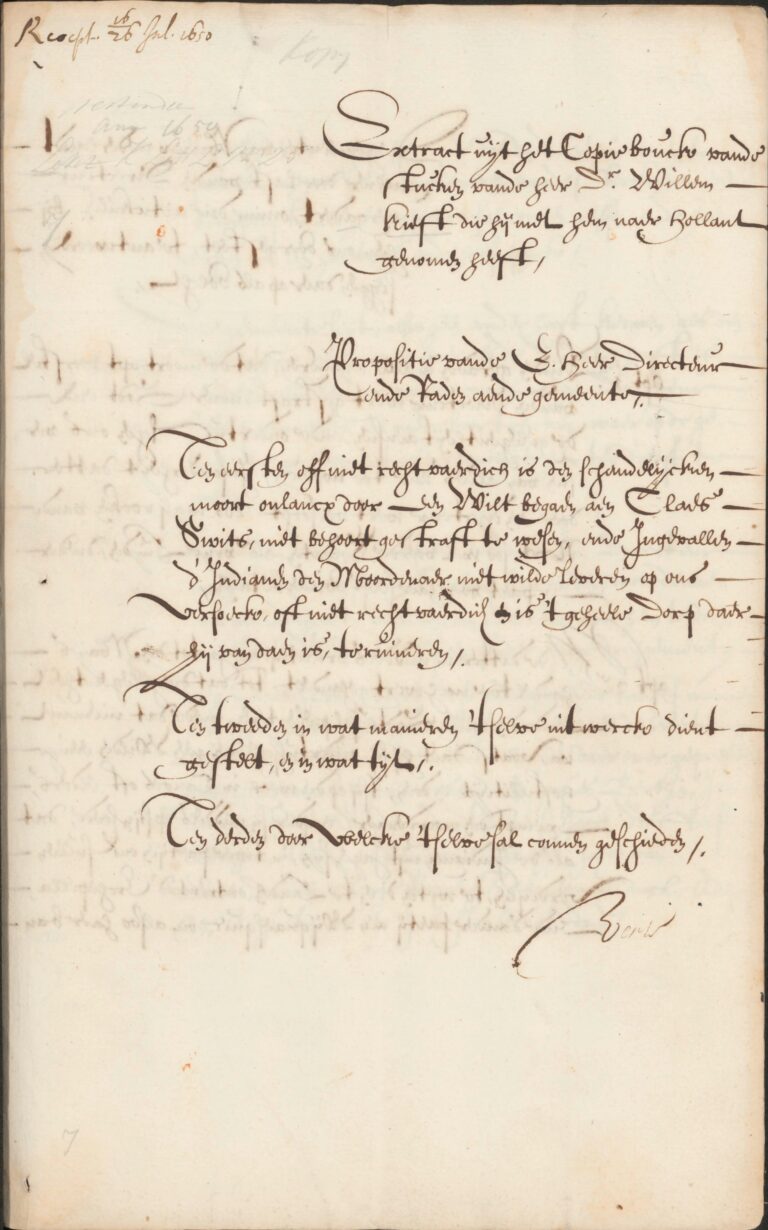 Recept. 16/26 Jul. 1650
Kopy
Extract uijt het Copie boucke vande
stucken vande heer Dr. Willem
Kieft die hij met hem naer Hollant
genomen heeft,
Propositie vande E. Heer Directeur
ende Raden aende gemeente,
Ten eersten off niet rechtvaerdich is den schandelijcken
moort onlancx door een Wilt begaen aen Claes
Swits, niet behoort gestraft te wesen, ende Ingevallen
d'Indianen den Moordenaer niet wilde leveren op ons
versoecke, oft niet rechtvaerdich is 't geheele dorp daer
hij van daen is, te ruineren /.
Ten tweeden in wat manieren 't selve int wercke dient
gestelt, en in wat tijt /.
Ten derden door welcke 't selve sal connen geschieden /.